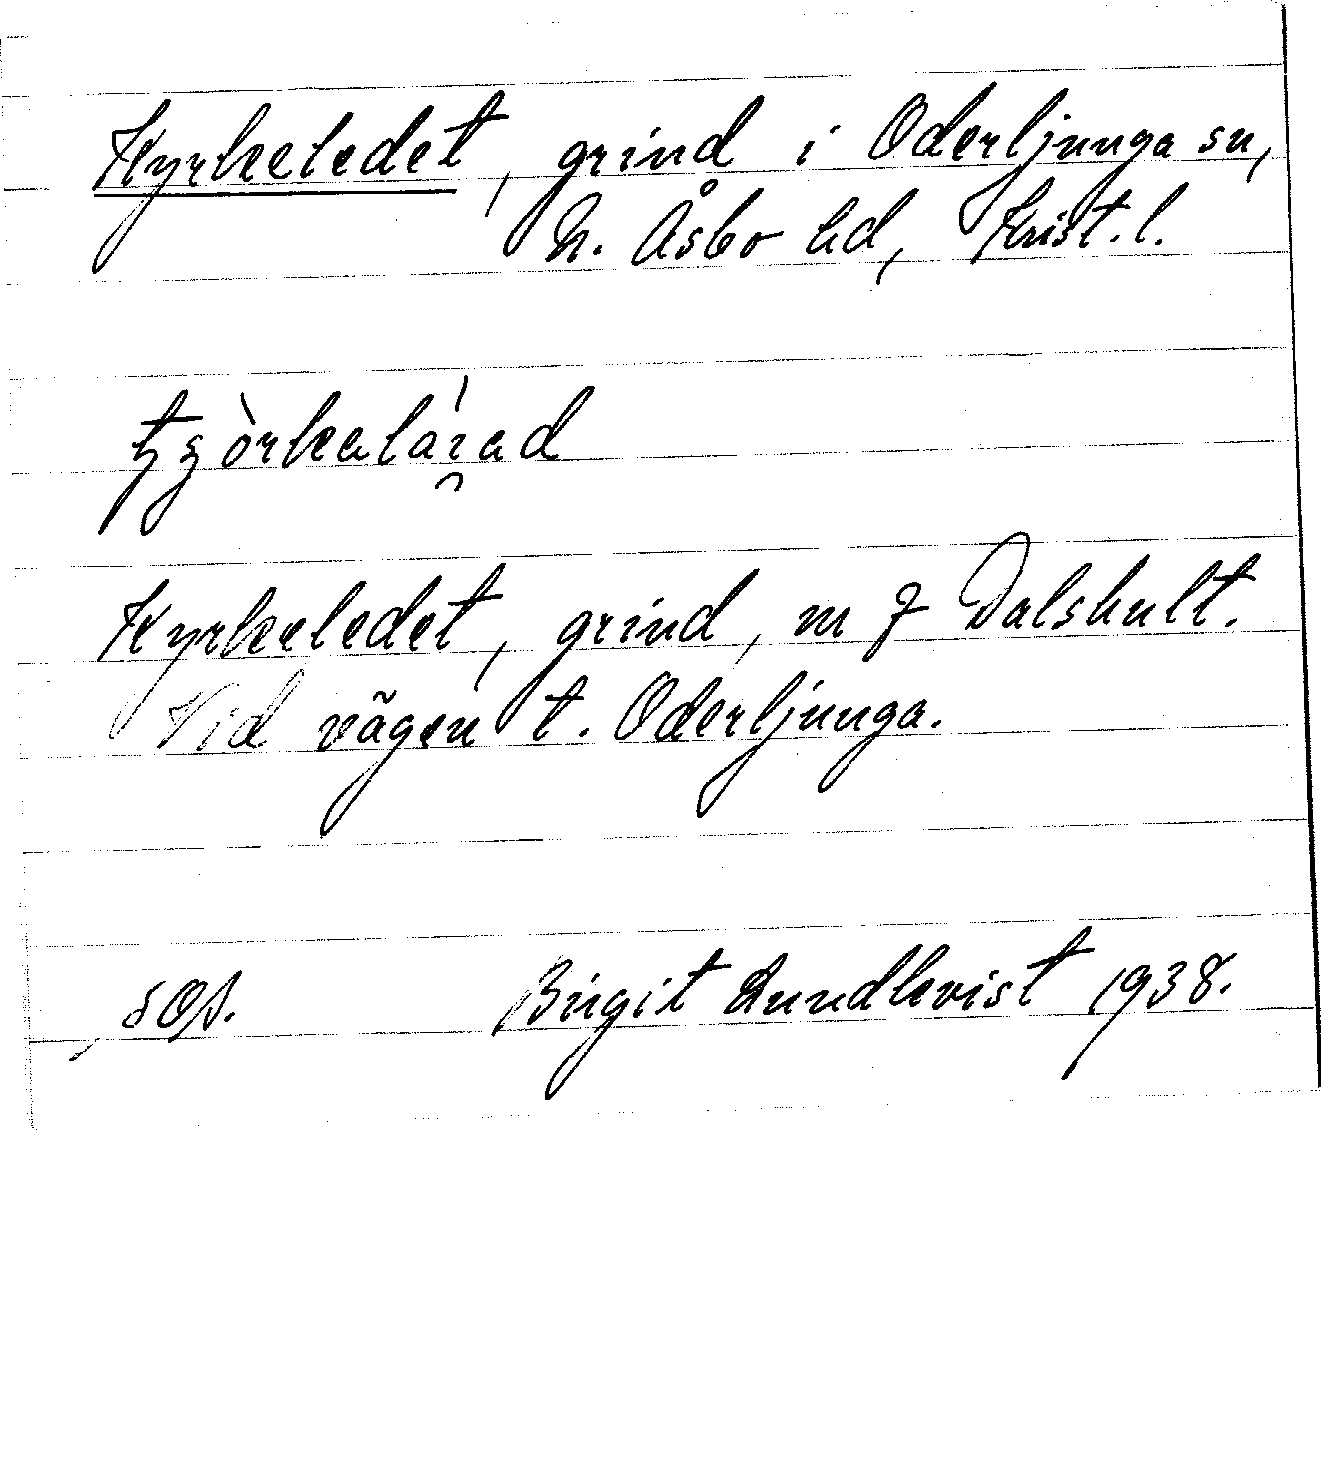 Kyrkeledet, grind i Oderljunga sn,
N. Åsbo hd, Krist. l.
Kyrkeledet, grind, m f Dalshult.
Vid vägen t. Oderljunga.
Birgit Lundkvist 1938.